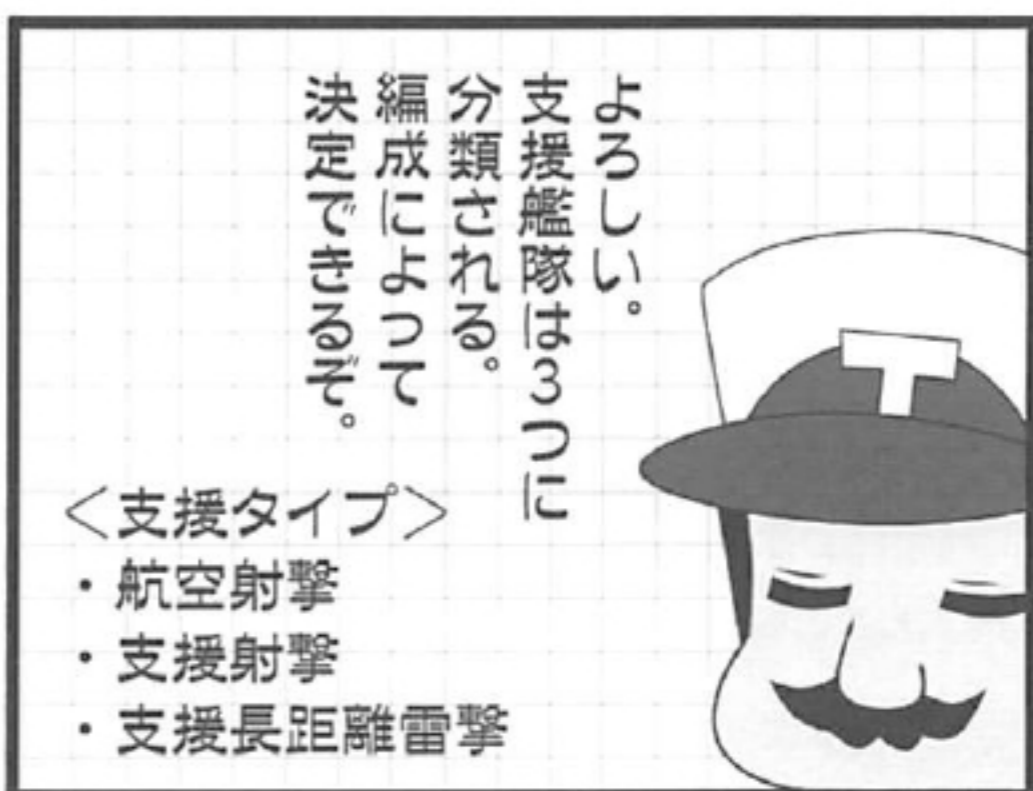 よろしい。
支援艦隊は3つに
分類される。
編成によって
決定できるぞ。
＜支援タイプ＞
・航空射撃
・支援射撃
・支援長距離雷撃
T